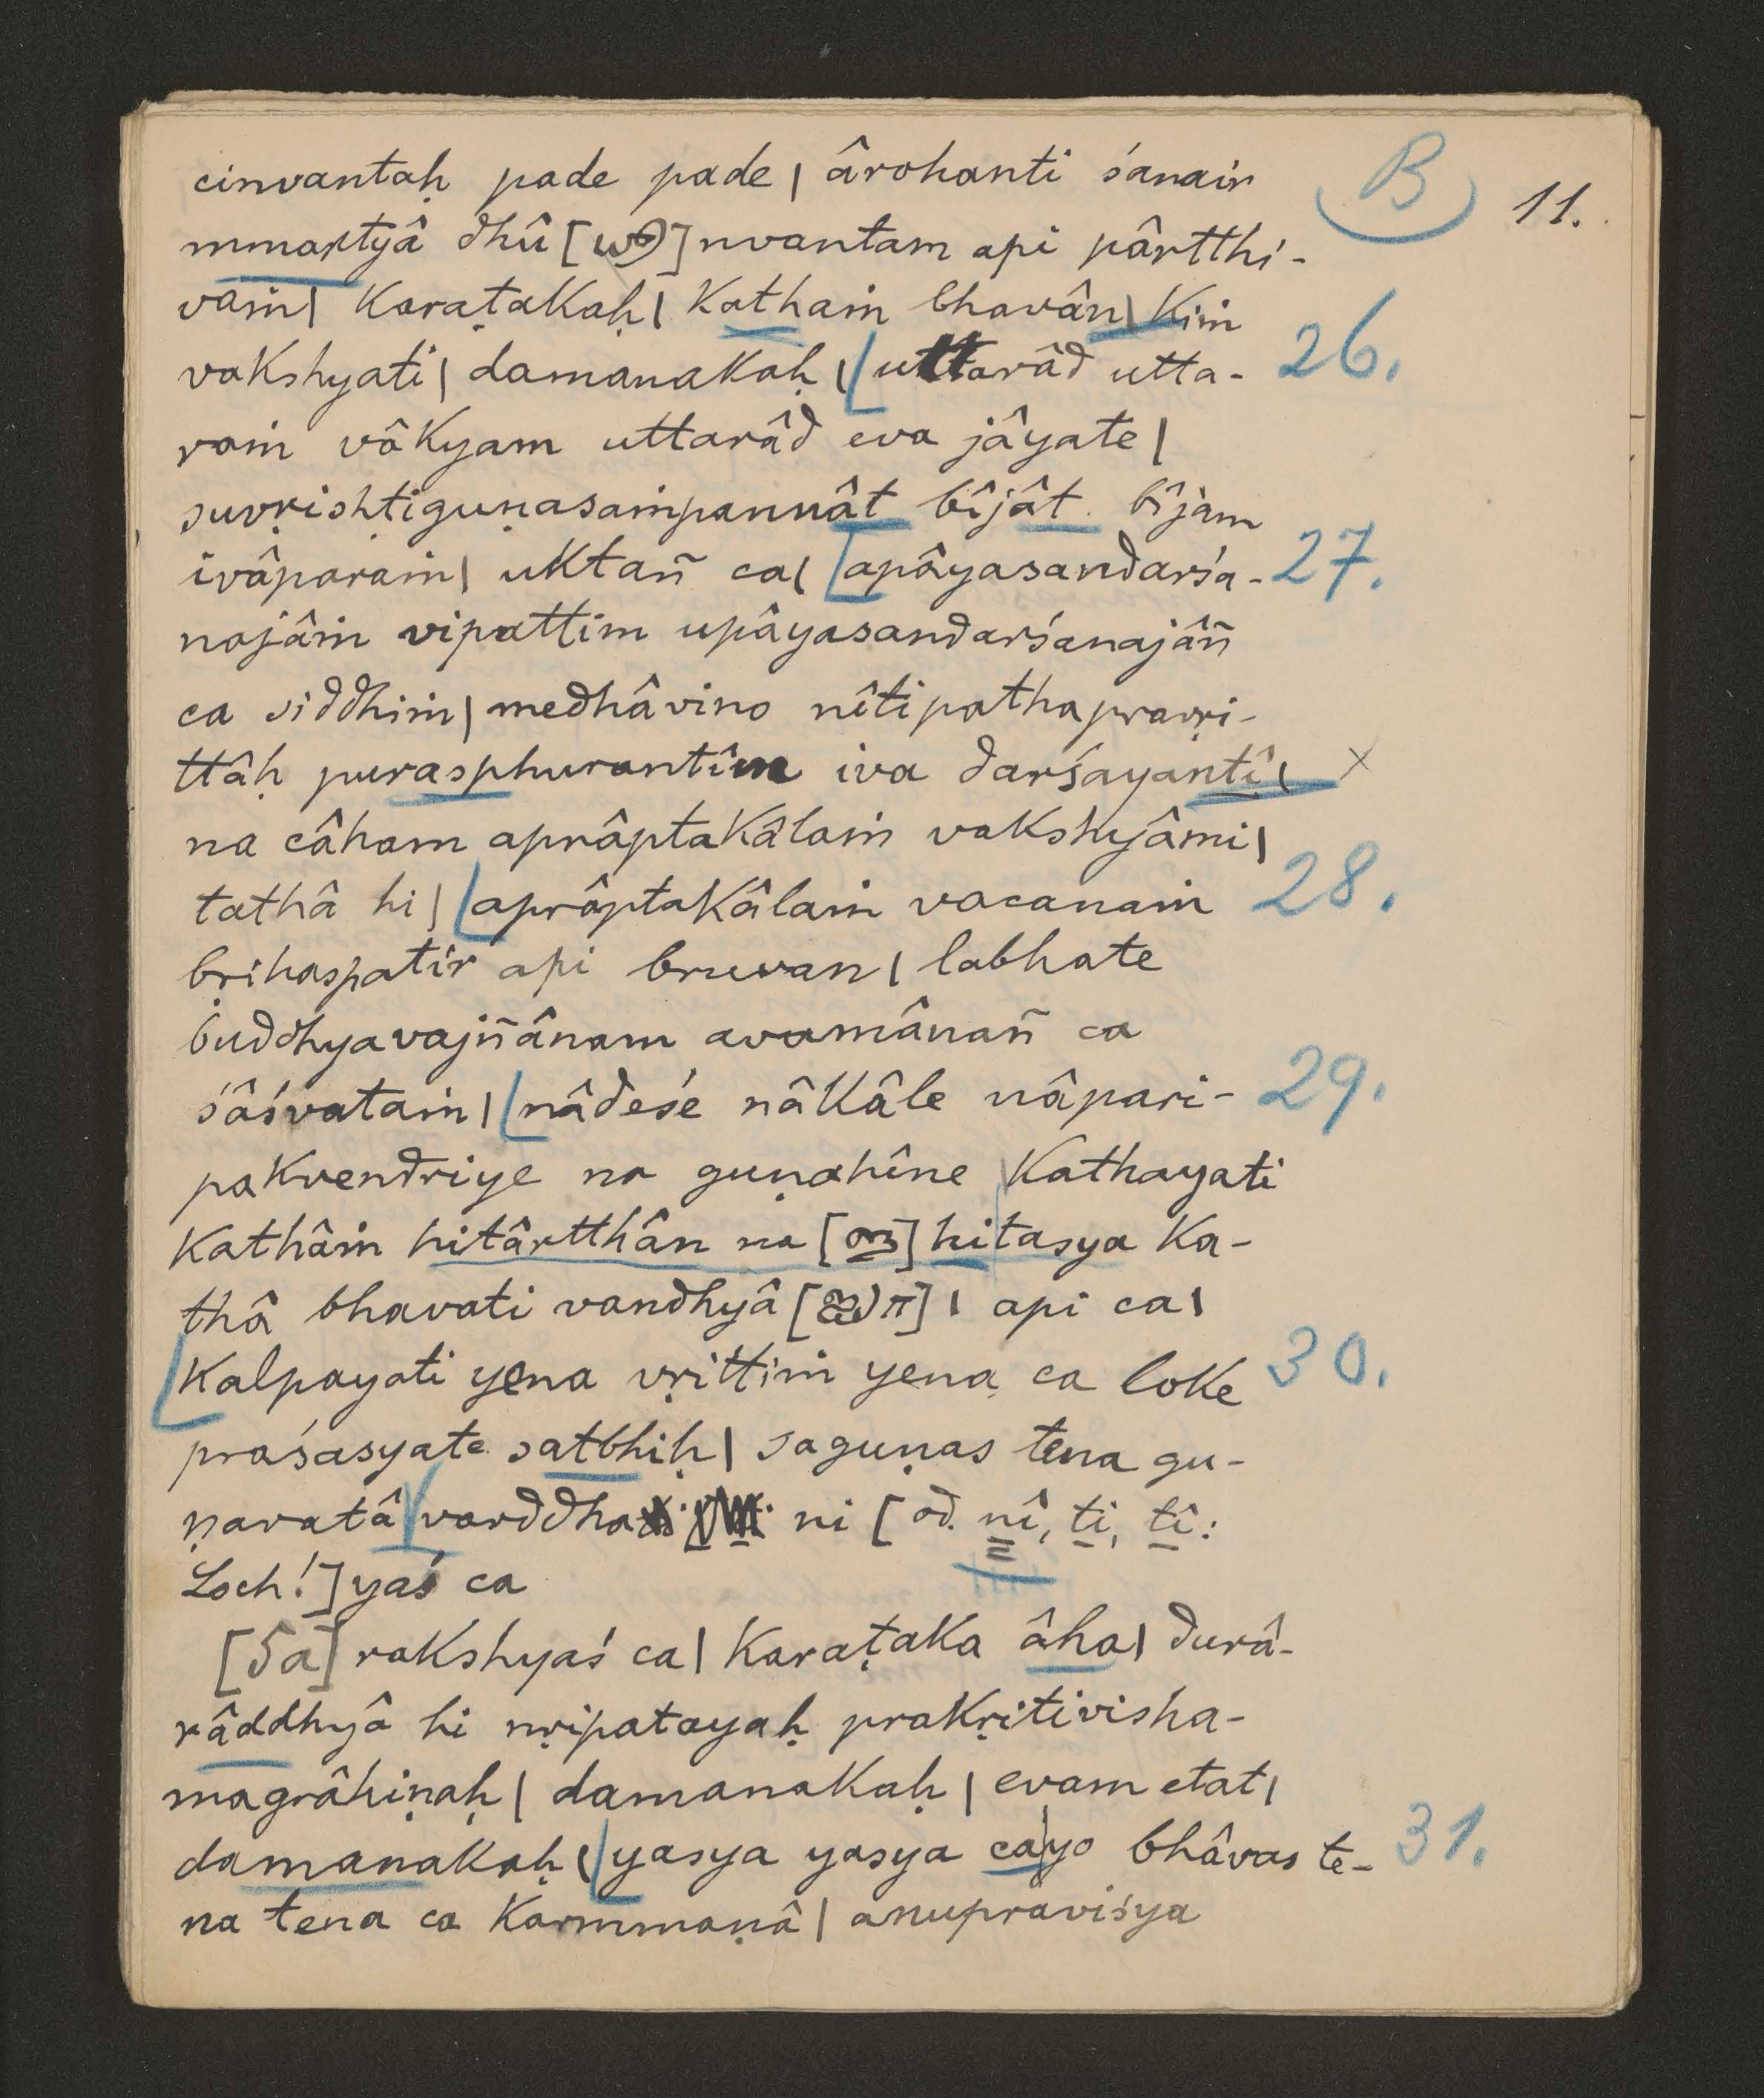 B 11.
cinvantaḥ pade pade | ârohanti śanair
mmartyâ dhû [ ] nvantam api pârtthi-
vaṁ | Karaṭakaḥ | Kathaṁ bhavân | Kiṁ
vakshyati | damanakaḥ | uttarâd utta- 26.
raṁ vâkyam uttarâd eva jâyate |
suvṛishṭiguṇasaṁpannât bîjât bîjam
ivâparaṁ | uktañ ca | apâyasandarśa- 27.
najâṁ vipattim upâyasandarśanajâñ
ca siddhiṁ | medhâvino nîtipathapravṛi-
ttâḥ purasphurantîm iva darśayantî | ×
na câham aprâptakâlaṁ vakshyâmi |
tathâ hi | aprâptakâlaṁ vacanaṁ 28.
bṛihaspatir api bruvan | labhate
buddhyavajñânam avamânañ ca
śâśvataṁ | nâdeśe nâkâle nâpari- 29.
pakvendriye na guṇahîne Kathayati
Kathâṁ hitârtthân na [ ] hitasya Ka-
thâ bhavati vandhyâ [ ] | api ca |
Kalpayati yena vṛittiṁ yena ca loke 30.
praśasyate satbhiḥ | saguṇas tena gu-
ṇavatâ varddha ni [od. nî, ti, tî:
Loch!] yaś ca
[5a] rakshyaś ca | Karaṭaka âha | durâ-
râddhyâ hi nṛipatayaḥ prakṛitivisha-
magrâhiṇaḥ | damanakaḥ | evam etat |
damanakaḥ | yasya yasya ca yo bhâvas te- 31.
na tena ca Karmmaṇâ | anupraviśya